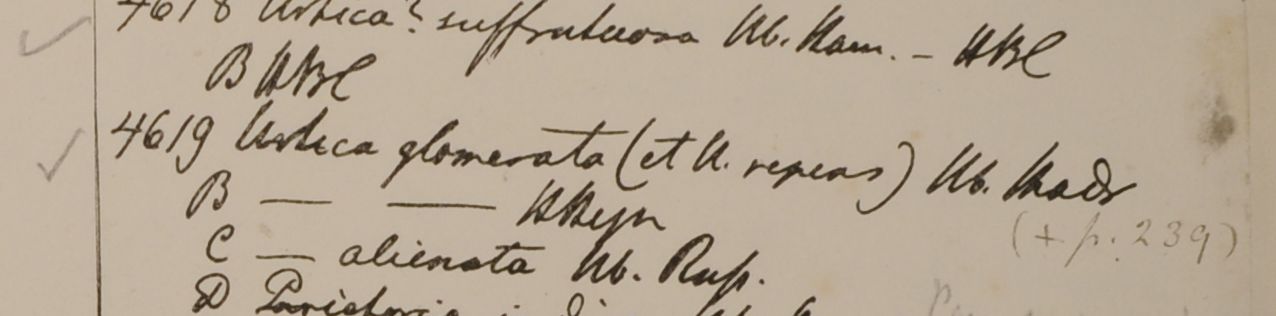 4618 Urtica? suffruticosa Hb. Ham. – HBC
B HBC
4619 Urtica glomerata (et U. repens) Hb. Madr
B — — HHeyn
(+ p. 239)
C — alienata Hb. Rup.
D Parietaria